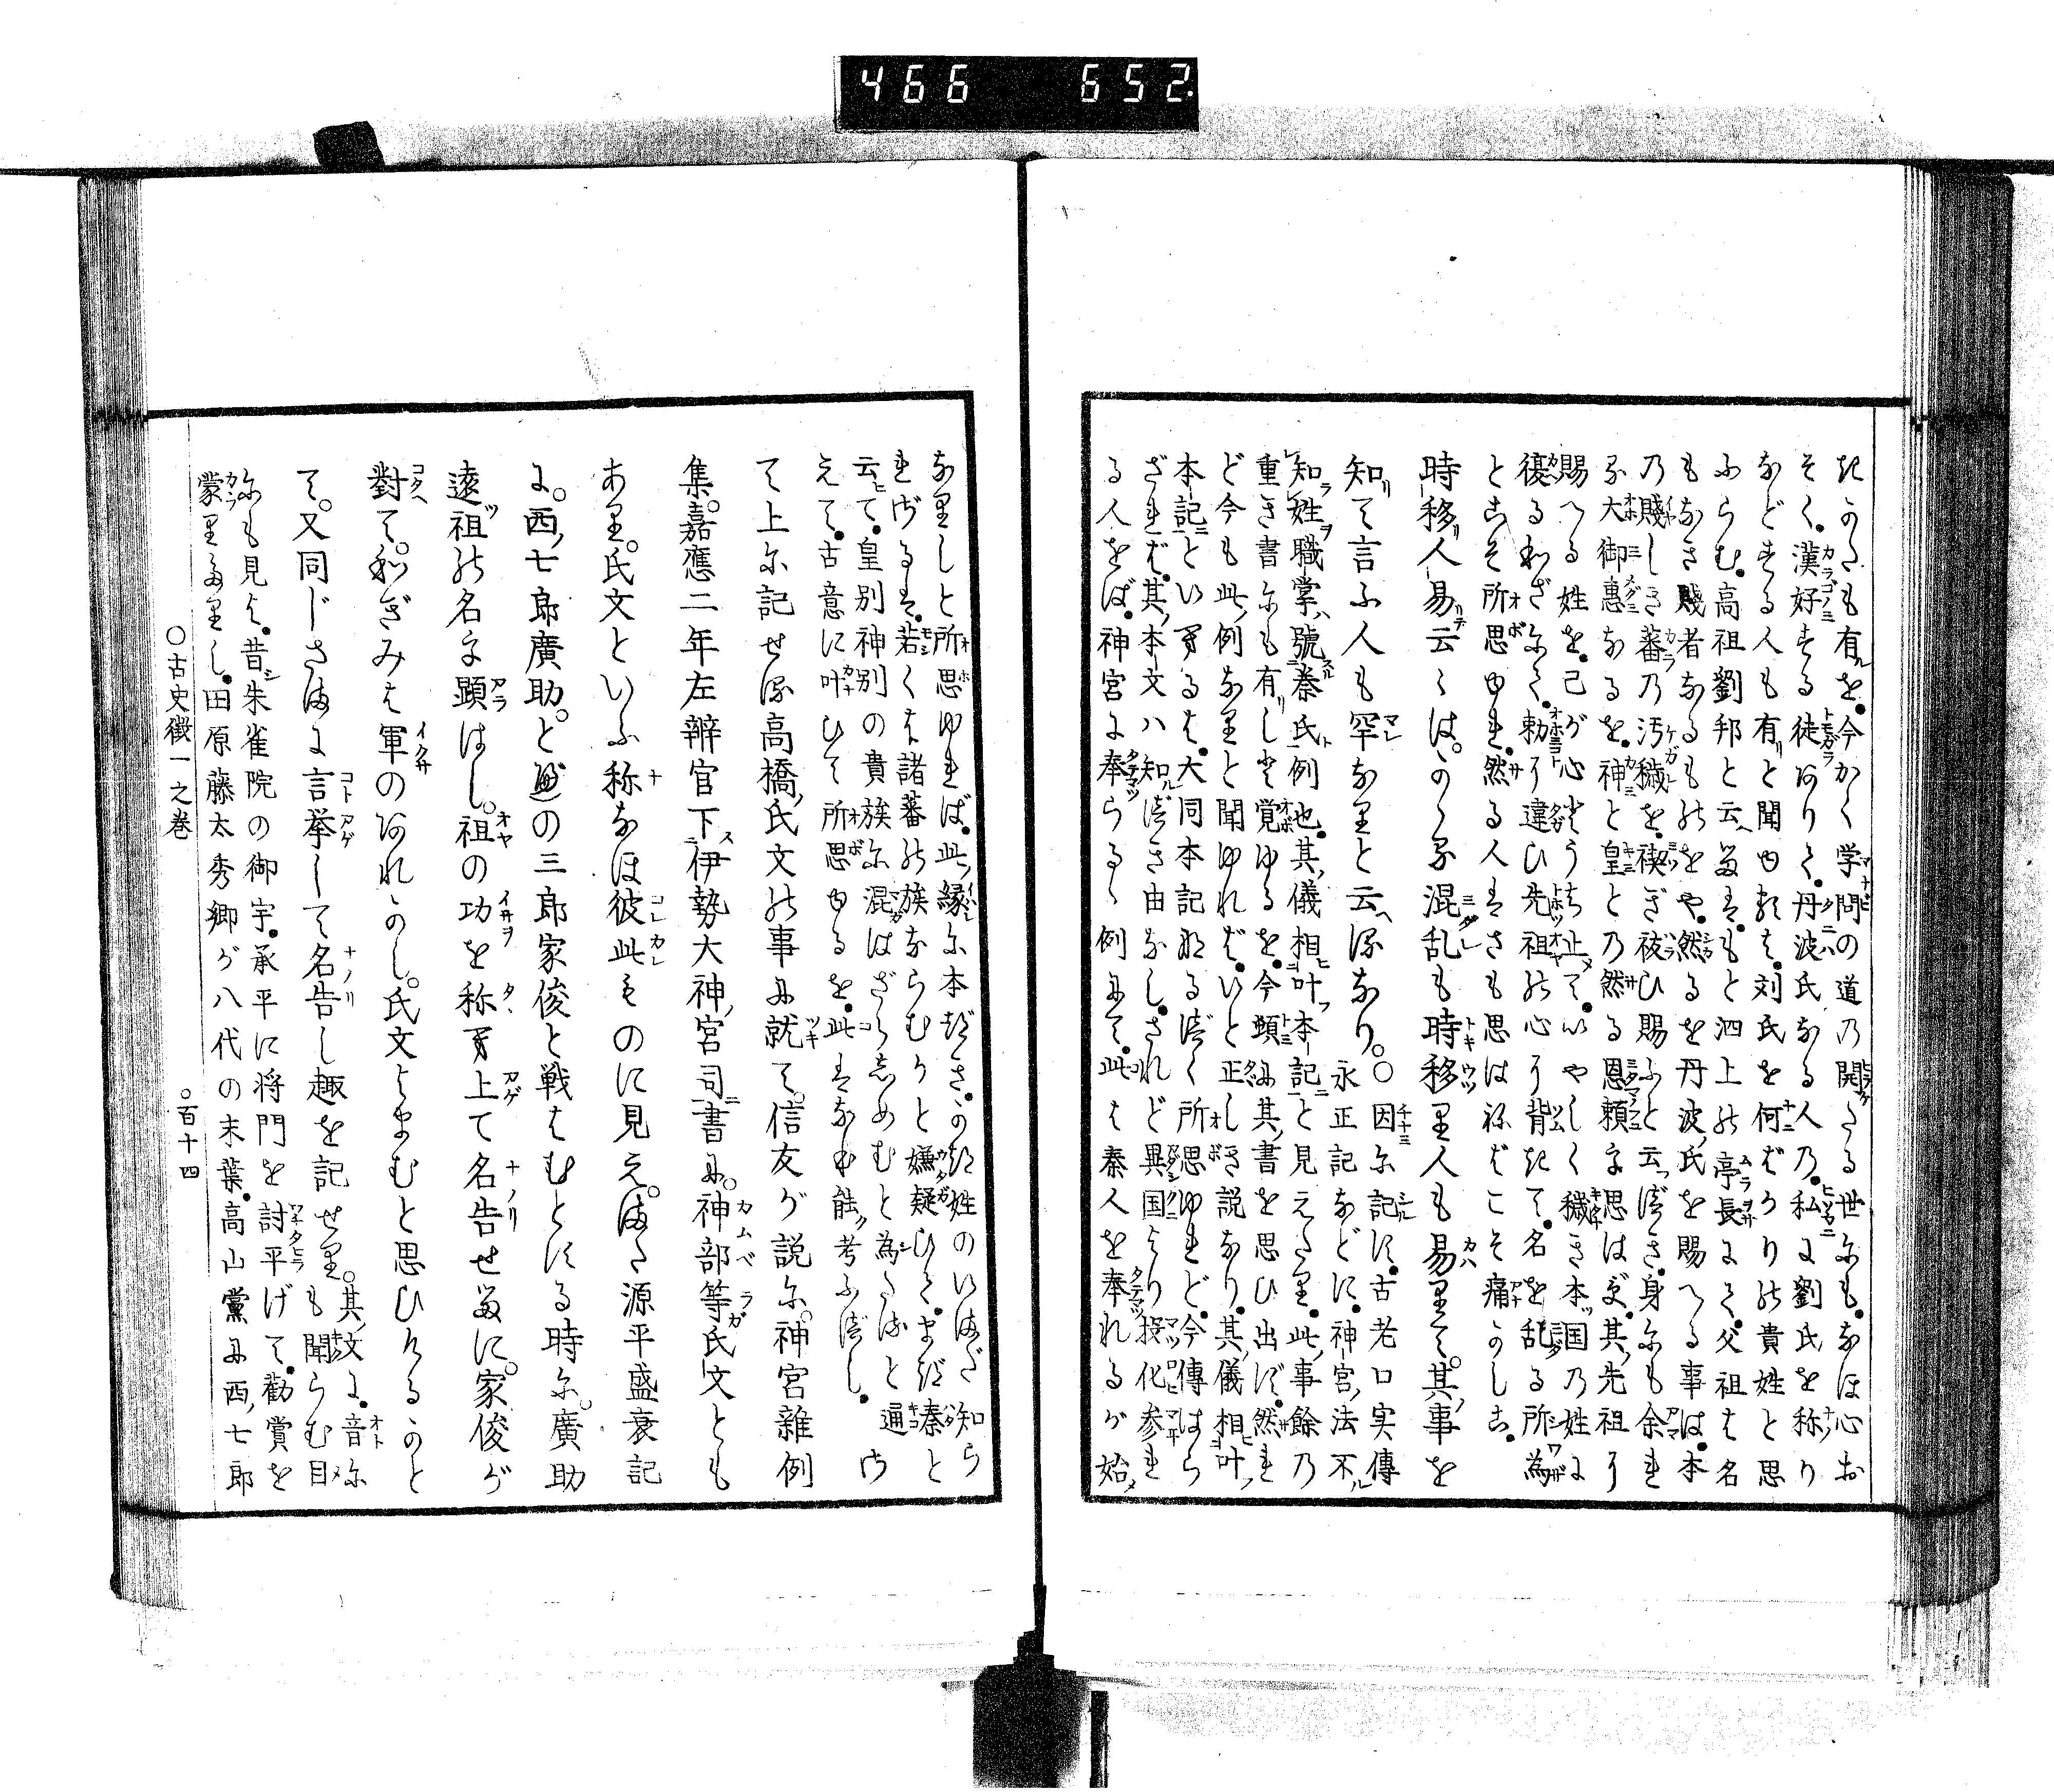 466 652.
きのミも有を。今かく学問の道乃開たる世にも。なほ心お
そく。漢好する徒ありて。丹波氏なる人乃。私に劉氏を称り
などする人も有と聞ゆるは。刘氏を何ばかりの貴姓と思
ふらむ。高祖劉邦と云へるは。もと泗上の亭長にて。父祖は名
もなき賤者なるものをや。然るを丹波氏を賜へる事は。本
乃賤しき蕃乃汚穢を。禊ぎ祓ひ賜ふと云べき。身にも余れ
る大御恵なるを。神と皇との然る恩頼を思はず。其先祖り
賜へる姓を。己が心もうち止て。いやしく穢き本国乃姓に
復るわざにて。勅り違ひ先祖の心り背きて。名を乱る所為
とこそ所思ゆれ。然る人はさも思はねばこそ痛のしこ。
時移人易云々は。のくる混乱も時移里人も易里て。其事を
知て言ふ人も罕なりと云るなり。〇因に記す。古老口実傳
永正記などに。神宮法不
知姓職掌。號秦氏例也。其儀相叶本記と見えたり。此事餘乃
重き書にも有しと覚ゆるを。今頓に其書を思ひ出ず。然れ
ど今も此例なりと聞ゆれば。いと正しき説なり。其儀相叶
本記といへるは。大同本記なるべく所思ゆれど。今傳はら
ざれば。其本文ハ知べき由なし。されど異国より投化参れ
る人をば。神宮に奉らる例にて。此は秦人を奉れるが始
なりしと所思ゆれば。此縁に本づき。のち姓のいまだ知ら
れざるは。若くは諸蕃の族ならむかと嫌疑ひて。まづ秦と
云て。皇別神別の貴族に混はざらしめむと為たると通
えて。古意に叶ひて所思ゆるを。此はなほ能考ふべし。
て上に記せる高橋氏文の事に就て。信友が説に。神宮雑例
集。嘉應二年左辨官下伊勢大神宮司書に。神部等氏文とも
あり。氏文といふ称なほ彼此ものに見え。また源平盛衰記
に。西七郎廣助。との三郎家俊と戦はむとする時に。廣助
遠祖の名を顕はし。祖の功を称へ上て名告せるに。家俊が
對て。わぎみは軍のあれのし。氏文よまむと思ひけるのと
て。又同じさまに言挙して名告し趣を記せり。其文に。音に
も聞らむ目
にも見よ。昔朱雀院の御宇。承平に将門を討平げて。勧賞を
蒙里たりし。田原藤太秀郷が八代の末葉。高山黨に西七郎
〇古史徴一之巻
〇百十四